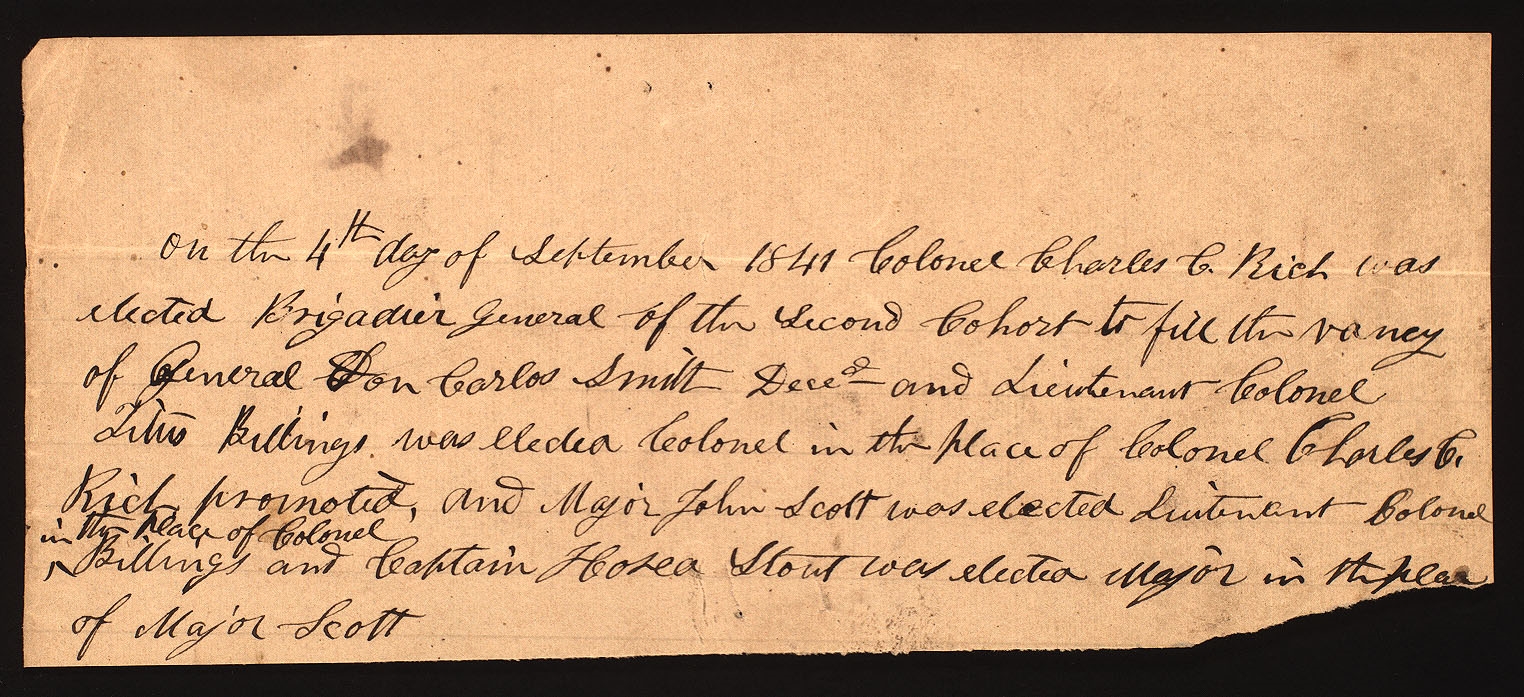 On the 4th day of September 1841 Colonel Charles C. Rich was
elected Brigadier General of the Second Cohort to fill the vancy
of General Don Carlos Smith Decd and Lieutenant Colonel
Titus Billings was elected Colonel in the place of Colonel Charles C.
Rich promoted, and Major John Scott was elected Lieutenant Colonel
in the place of Colonel
^ Billings and Captain Hosea Stout was elected Major in the place
of Major Scott